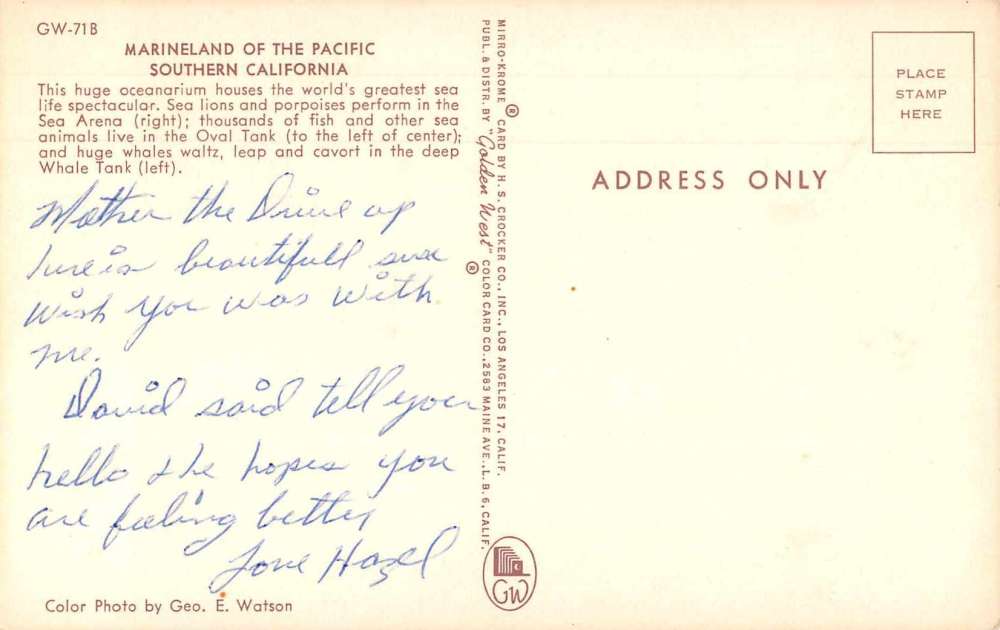 GW-71B
MARINELAND OF THE PACIFIC
SOUTHERN CALIFORNIA
This huge oceanarium houses the world's greatest sea
life spectacular. Sea lions and porpoises perform in the
Sea Arena (right); thousands of fish and other sea
animals live in the Oval Tank (to the left of center);
and huge whales waltz, leap and cavort in the deep
Whale Tank (left).
Mother the Drive up
here is beautifull sure
wish you was with
me.
David said tell you
hello & he hopes you
are feeling better
Love Hazel
Color Photo by Geo. E. Watson
MIRRO-KROME ® CARD BY H. S. CROCKER CO., INC., LOS ANGELES 17, CALIF.
PUBL. & DISTR. BY "Golden West" ® COLOR CARD CO., 2583 MAINE AVE., L. B. 6, CALIF.
GW
ADDRESS ONLY
PLACE
STAMP
HERE